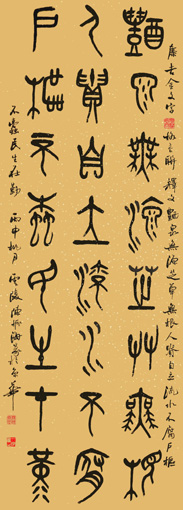 醴泉無源芝草無根人貴自立流水不腐户樞
醴泉無源芝艸無根
人貴自立流水不腐
户樞不蠹民生在堇
不蠹民生在勤 丙申桃月